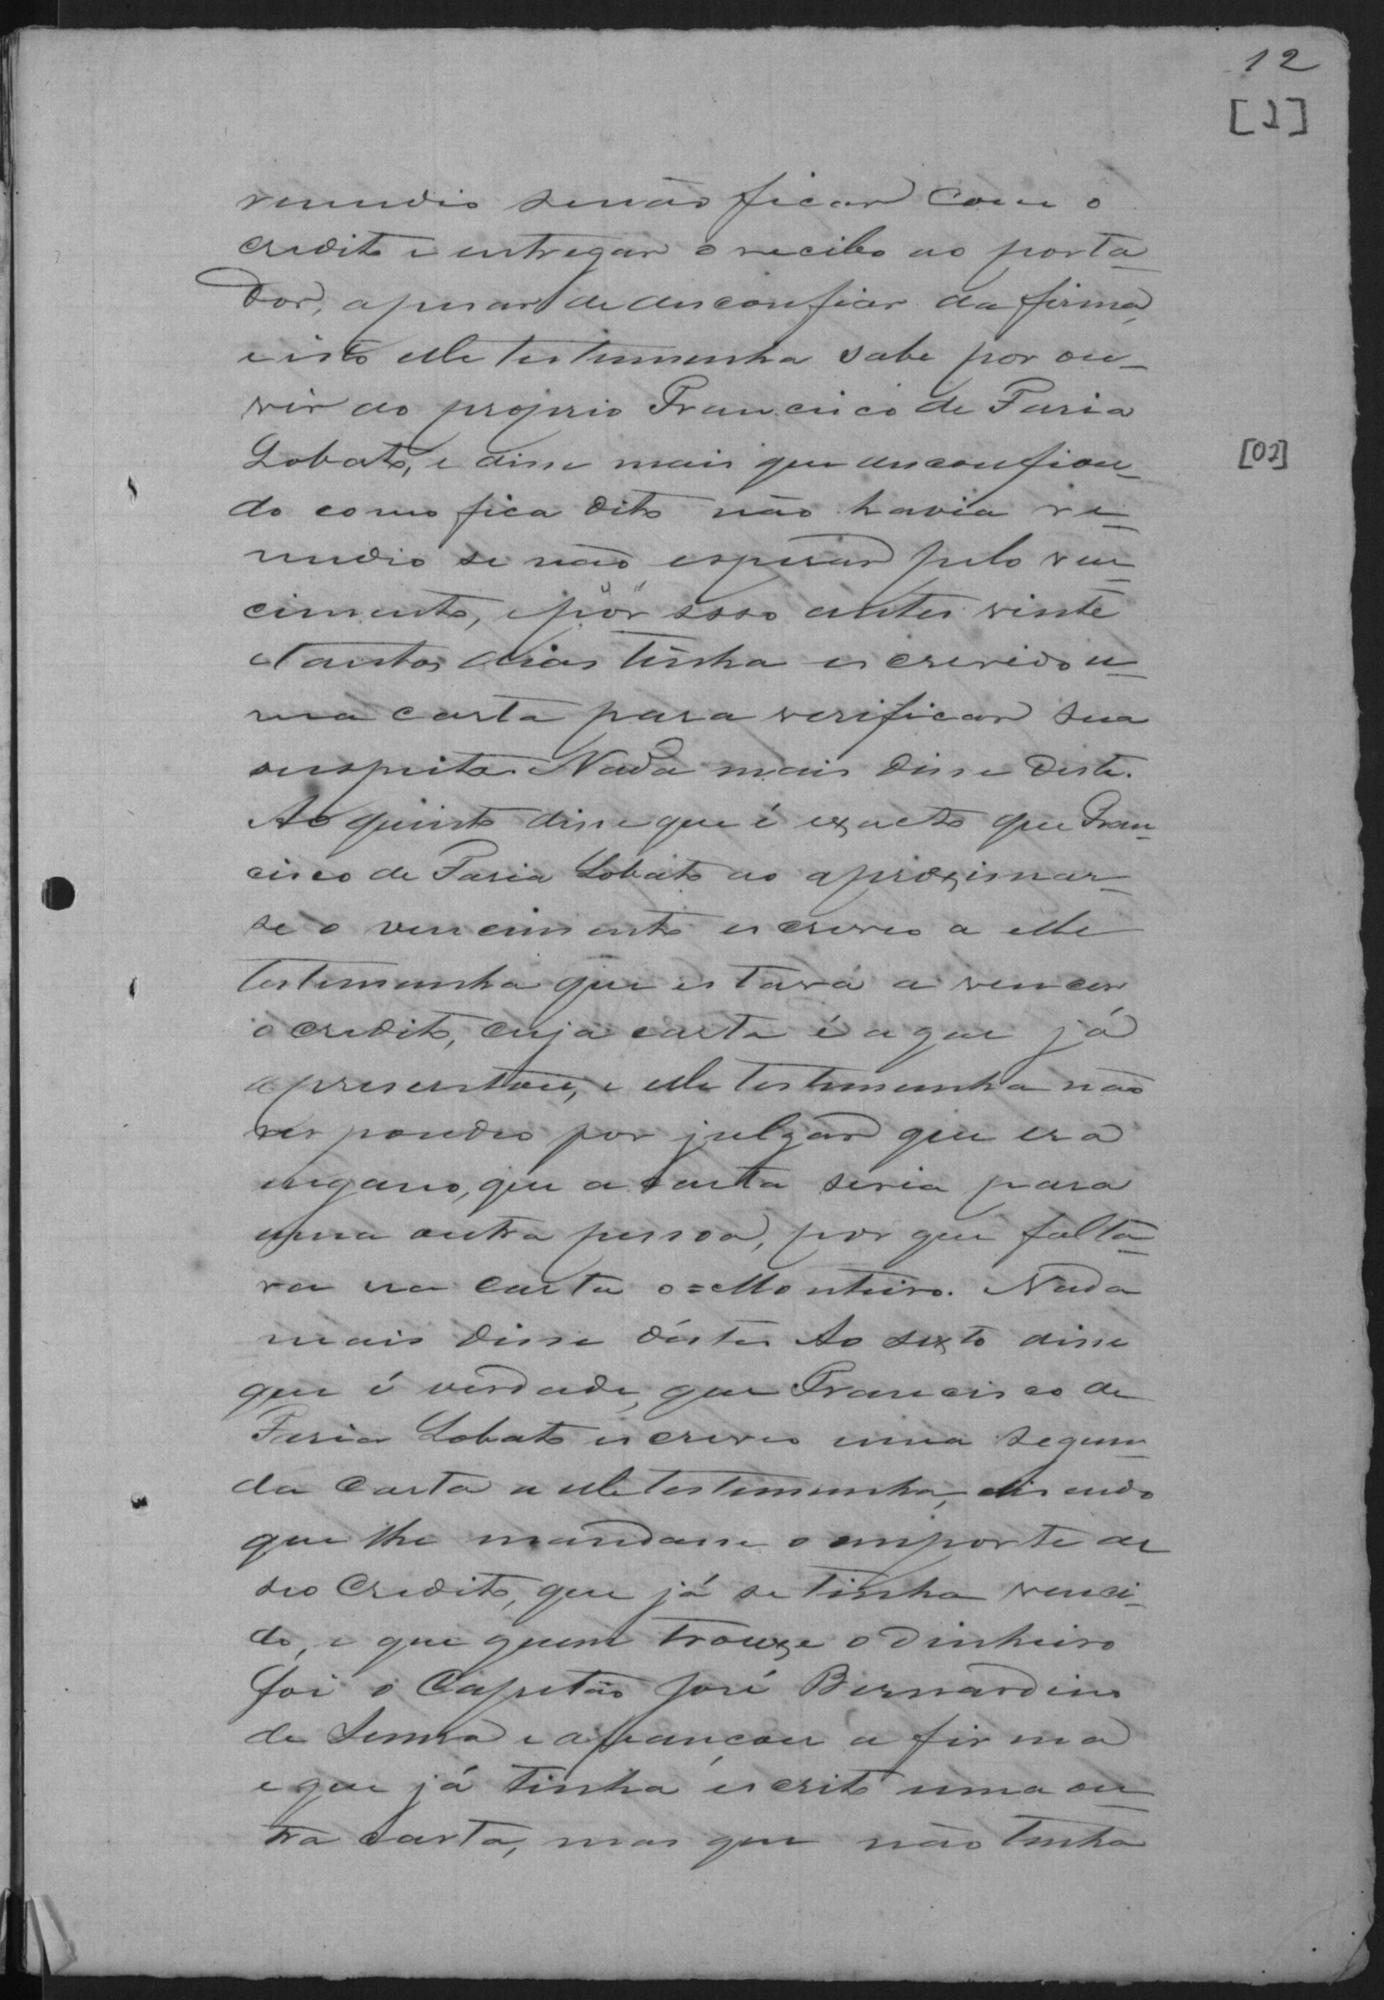 12
[1]
remedio senão ficar com o
credito e entregar o recibo ao porta-
dor, apesar de desconfiar da firma,
e isto elle testemunha sabe por ou-
vir ao proprio Francisco de Faria
Lobato, e disse mais que desconfian-
[02]
do como fica dito não havia re-
medio se não esperar pelo ven-
cimento, e por isso antes vinte
e tantos dias tinha escrevido u-
ma carta para verificar sua
suspeita. Nada mais disse deste.
Ao quinto disse que é exacto que Fran-
cisco de Faria Lobato ao aproximar-
se o vencimento escreveo a elle
testemunha que estava a vencer
o credito, cuja carta é a que já
apresentou, e elle testemunha não
respondeo por julgar que era
engano, que a carta seria para
uma outra pessoa, por que falta-
va na carta o = Monteiro. Nada
mais disse déste. Ao sexto disse
que é verdade, que Francisco de
Faria Lobato escreveo uma segun-
da carta a elle testemunha, disendo
que lhe mandasse o importe de
seo credito, que já se tinha venci-
do, e que quem trouxe o dinheiro
foi o Capitão José Bernardino
de Senna e afiançou a firma
e que já tinha escrito uma ou-
tra carta, mas que não tinha